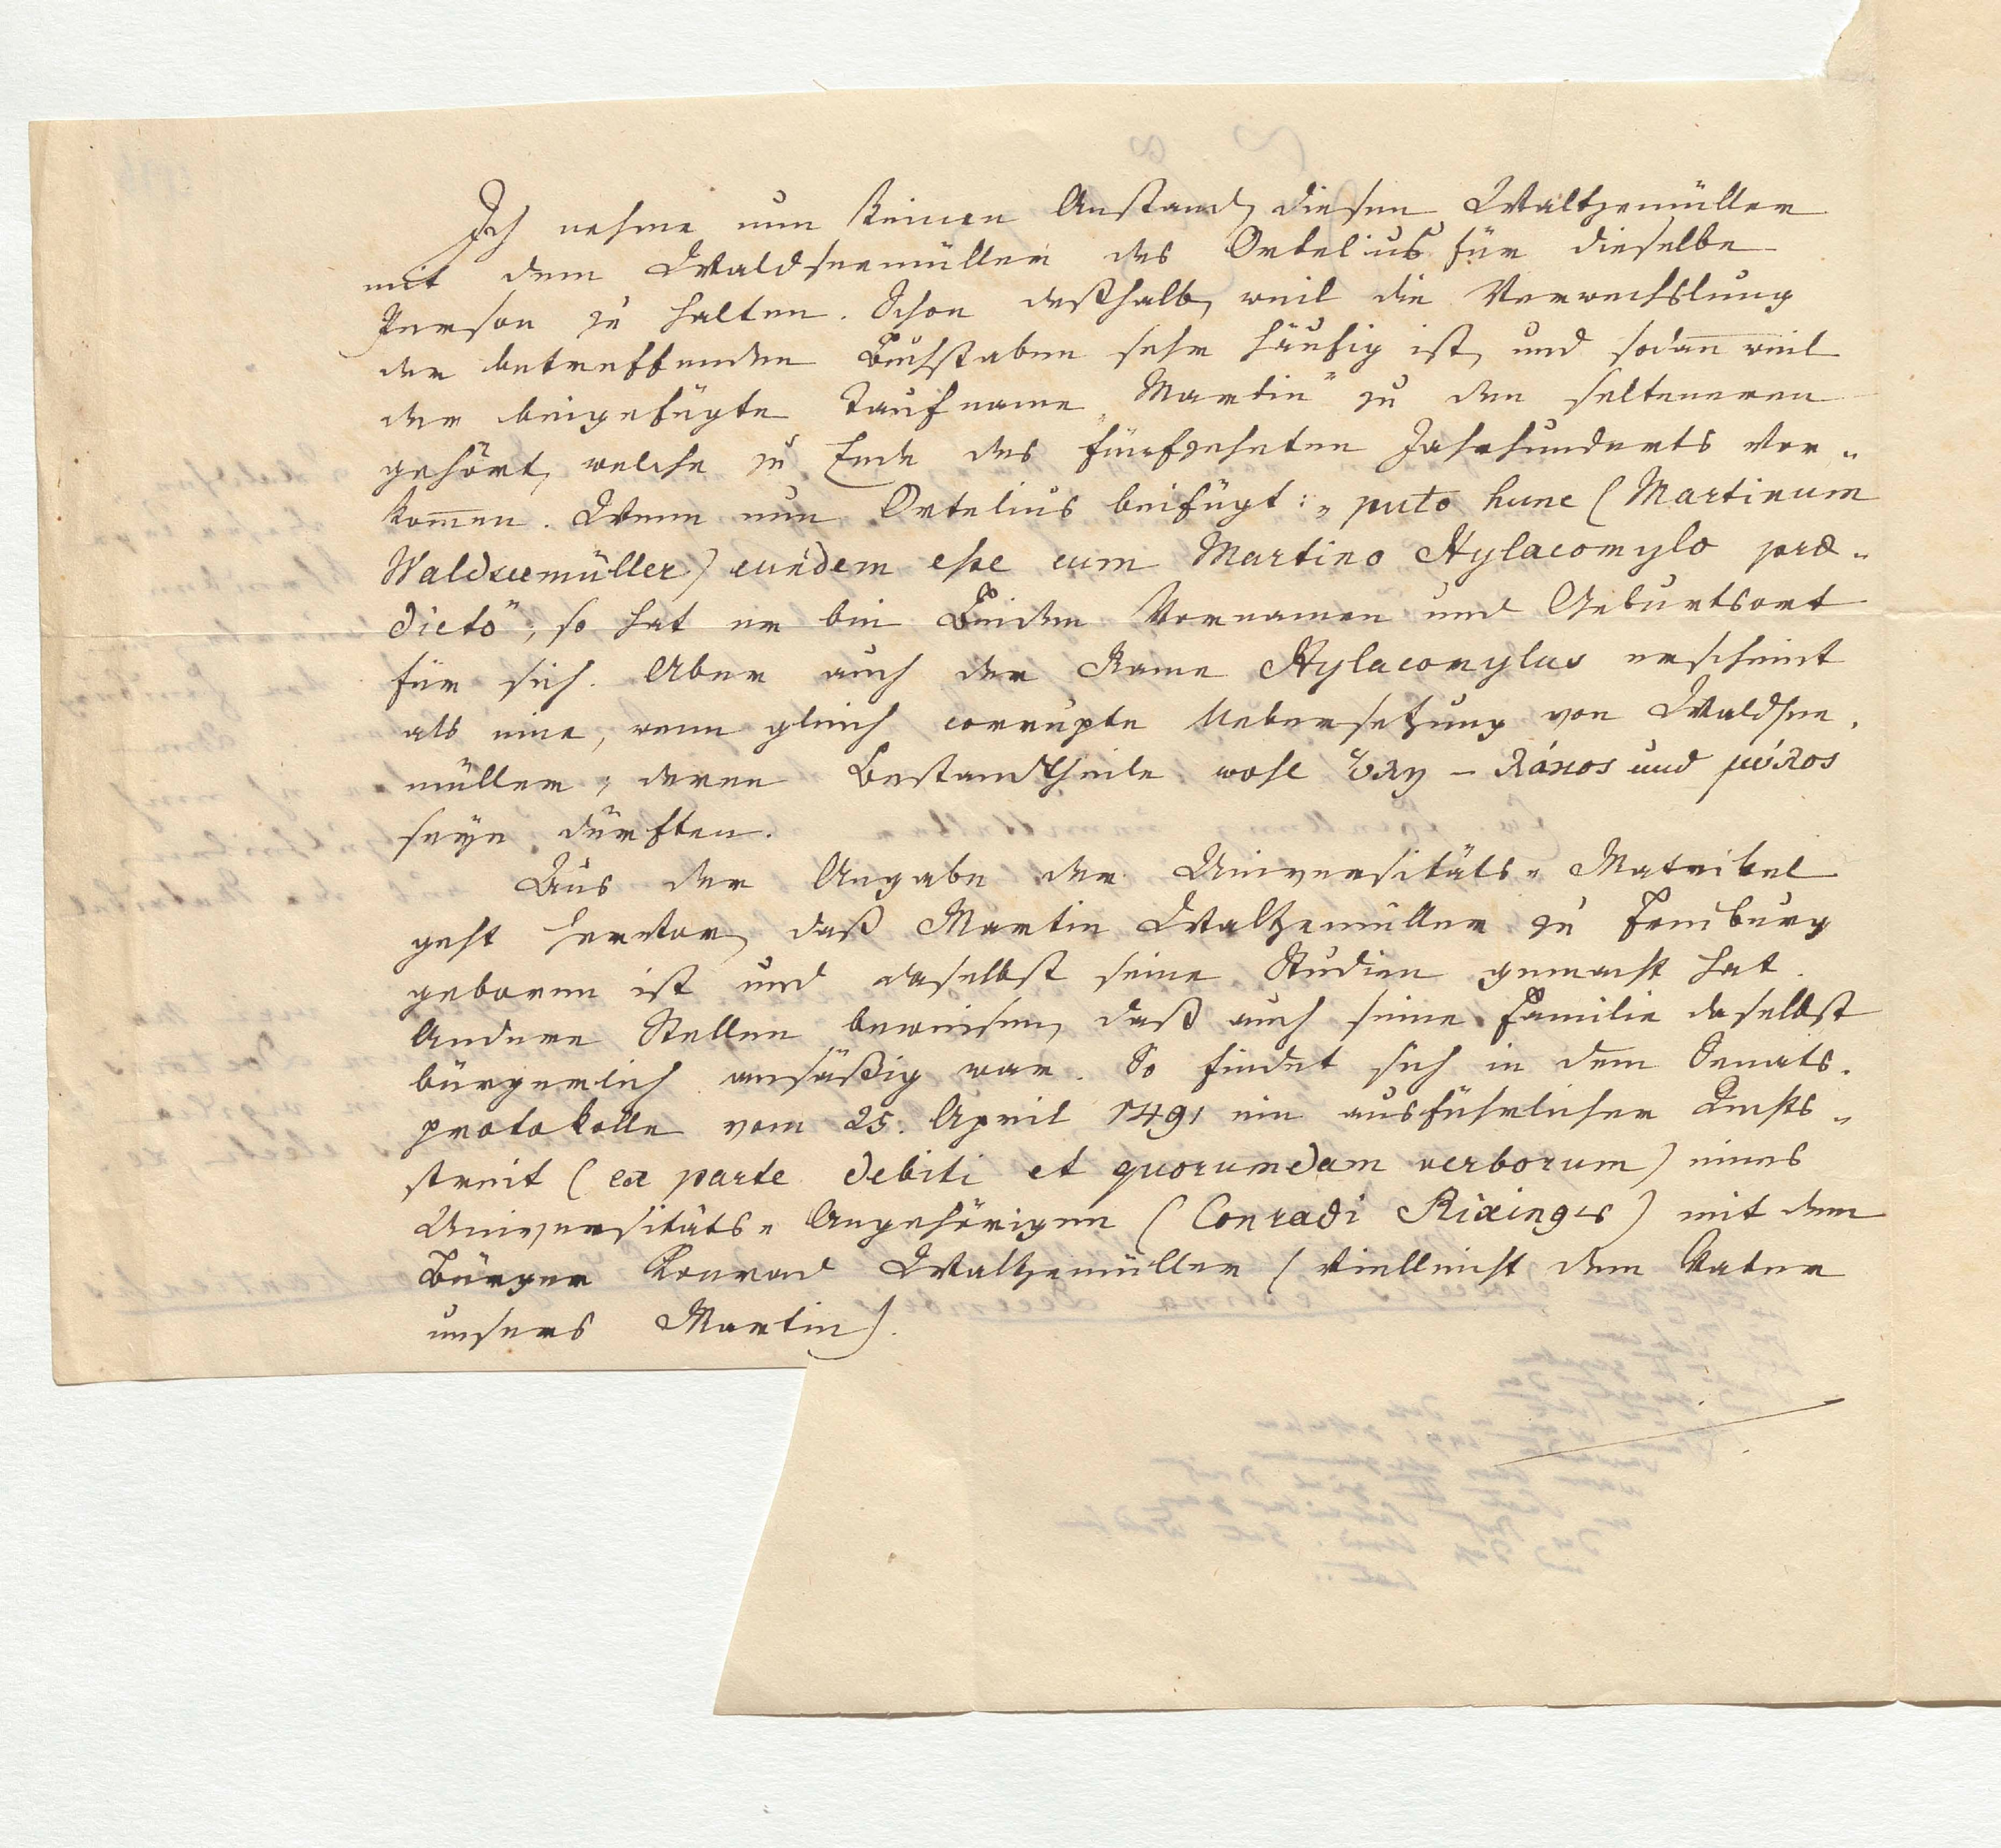 Ich nehme nun keinen Anstand, diesen Waltzemüller
mit dem Waldseemüller des Ortelius für dieselbe
Person zu halten. Schon deßhalb, weil die Verwechslung
der betreffenden Buchstaben sehr häufig ist, und sodan̄ weil
der beigefügte Taufname „Martin" zu den selteneren
gehört, welche zu Ende des fünfzehnten Jahrhunderts vor-
kom̄en. Wenn nun Ortelius beifügt: „puto hunc (Martinum
Waldseemüller) eundem eße cum Martino Hylacomylo præ-
dicto", so hat er bei Beiden Vornamen und Geburtsort
für sich. Aber auch der Name Hylacomylus erscheint
als eine, wenn gleich corrupte Uebersetzung von Waldsee-
müller, deren Bestandtheile wohl ὕλη – λάκος und μύλος
seyn dürften.
Aus der Angabe der Universitäts-Matrikel
geht hervor, daß Martin Waltzemüller zu Freiburg
geboren ist und daselbst seine Studien gemacht hat.
Andere Stellen beweisen, daß auch seine Familie daselbst
bürgerlich ansäßig war. So findet sich in dem Senats-
protokolle vom 25. April 1491 ein ausführlicher Rechts-
streit (ex parte debiti et quorumdam verborum) eines
Universitäts-Angehörigen (Conradi Rixinger) mit dem
Bürger Konrad Waltzemüller (vielleicht dem Vater
unsers Martin).